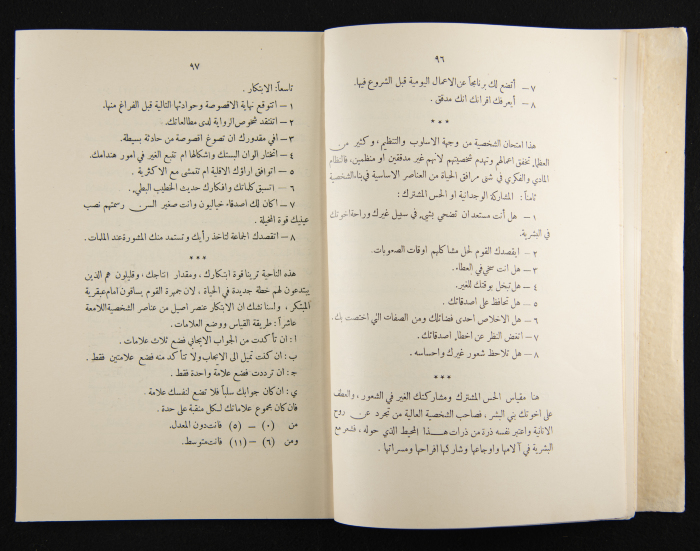 ٩٦
٧ – أتضع لك برنامجاً عن الاعمال اليومية قبل الشروع فيها.
٨ – أيعرفك اقرانك انك مدقق .
***
هذا امتحان الشخصية من وجهة الاسلوب والتنظيم ، وكثير من
العظاء تخفق اعمالهم وتهدم شخصيتهم لانهم غير مدققين او منظمين، فالنظام
المادي والفكري في شتى مرافق الحياة من العناصر الاساسية في بناء الشخصية
ثامناً : المشاركة الوجدانية او الحس المشترك :
١ – هل أنت مستعد ان تضحي بشيء في سبيل غيرك وراحة اخوتك
في البشرية.
٢ – ايقصدك القوم لحل مشاكلهم اوقات الصعوبات .
٣ – هل انت سخي في العطاء.
٤ – هل تبخل بوقتك للغير.
٥ – هل تحافظ على اصدقائك .
٦ – هل الاخلاص احدى فضائلك ومن الصفات التي اختصت بك.
٧ – اتغض النظر عن اخطاء اصدقائك .
٨ – هل تلاحظ شعور غيرك واحساسه .
***
هنا مقياس الحس المشترك ومشاركتك الغير في الشعور ، والعطف
على اخوتك بني البشر ، فصاحب الشخصية العالية من تجرد عن روح
الانانية واعتبر نفسه ذرة من ذرات هذا المحيط الذي حوله ، فشعر مع
البشرية في آلامها واوجاعها وشاركها افراحها ومسراتها .
٩٧
تاسعاً: الابتكار .
١ – اتتوقع نهاية الاقصوصة وحوادثها التالية قبل الفراغ منها.
٢ – اتنتقد شخوص الرواية لدى مطالعاتك.
٣ – افي مقدورك ان تصوغ اقصوصة من حادثة بسيطة.
٤ – اتختار الوان البستك واشكالها ام تتبع الغير في امور هندامك.
٥ – اتوافق اراؤك الاقلية ام تتمشى مع الاكثرية .
٦ – اتسبق كلماتك وافكارك حديث الخطيب البطيء .
٧ – اكان لك اصدقاء خياليون وانت صغير السن رسمتهم نصب
عينيك قوة المخيلة .
٨ – اتقصدك الجماعة لتاخذ رأيك وتستمد منك المشورة عند الملمات .
***
هذه الناحية ترينا قوة ابتكارك ، ومقدار انتاجك ، وقليلون هم الذين
يبتدعون لهم خطة جديدة في الحياة ، لان جمهرة القوم يساقون امام عبقرية
المبتكر ، ولسنا نشك ان الابتكار عنصر اصيل من عناصر الشخصية اللامعة
عاشراً : طريقة القياس ووضع العلامات .
ا : ان تأكدت من الجواب الايجابي فضع ثلاث علامات .
ب : ان كنت تميل الى الايجاب ولا تتأكد منه فضع علامتين فقط .
ج : ان ترددت فضع علامة واحدة فقط .
ي : ان كان جوابك سلباً فلا تضع لنفسك علامة .
فان كان مجموع علاماتك لكل منقبة على حدة .
من (٠) – (٥) فانت دون المعدل.
ومن (٦) – (١١) فانت متوسط.